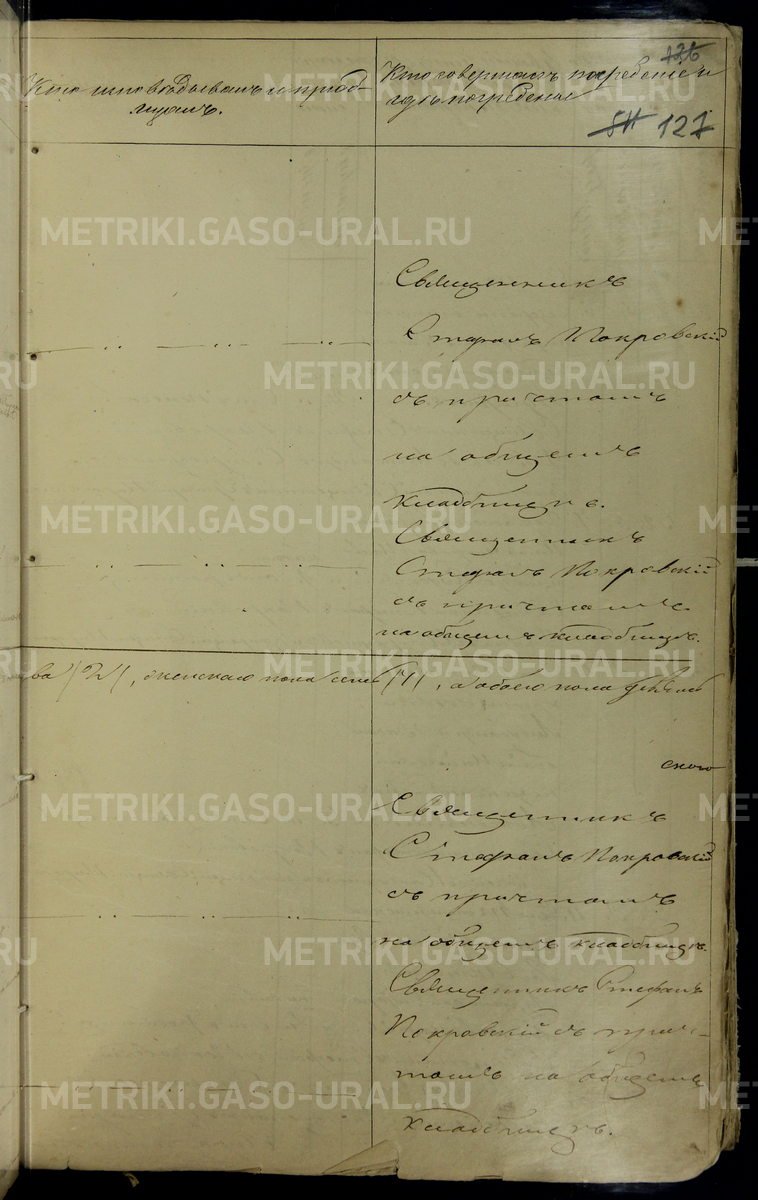 126
Кто исповѣдывалъ и прiоб-
щалъ.
Кто совершалъ погребенiе и
гдѣ погребены
127
Священникъ
Стефанъ Покровскiй
съ причтомъ
на общемъ
кладбищѣ.
Священникъ
Стефанъ Покровскiй
съ причтомъ
на общемъ кладбищѣ.
ва /2/, женскаго пола семь /7/, а обоего пола девять
скаго
Священникъ
Стефанъ Покровскiй
съ причтомъ
на общемъ кладбищѣ.
Священникъ Стефанъ
Покровскiй съ прич-
томъ на общемъ
кладбищѣ.
METRIKI.GASO-URAL.RU